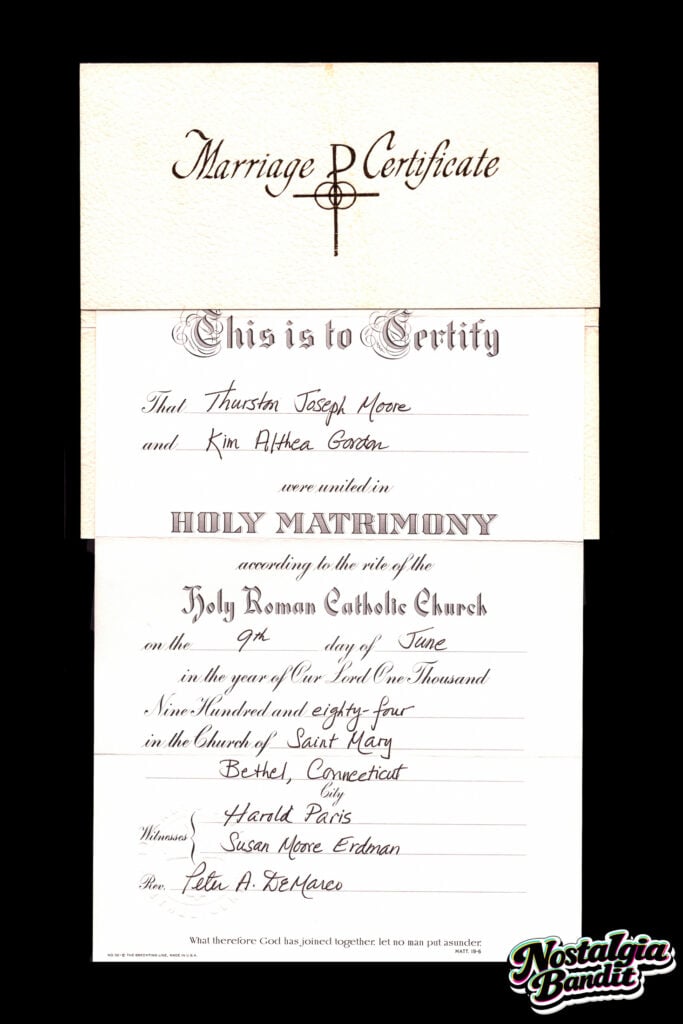 Marriage Certificate
This is to Certify
That Thurston Joseph Moore
and Kim Althea Gordon
were united in
HOLY MATRIMONY
according to the rite of the
Holy Roman Catholic Church
on the 9th day of June
in the year of Our Lord One Thousand
Nine Hundred and eighty-four
in the Church of Saint Mary
Bethel, Connecticut
City
Harold Paris
Witnesses
Susan Moore Erdman
Rev. Peter A. DeMarco
What therefore God has joined together, let no man put asunder.
MATT. 19-6
Nostalgia
Bandit